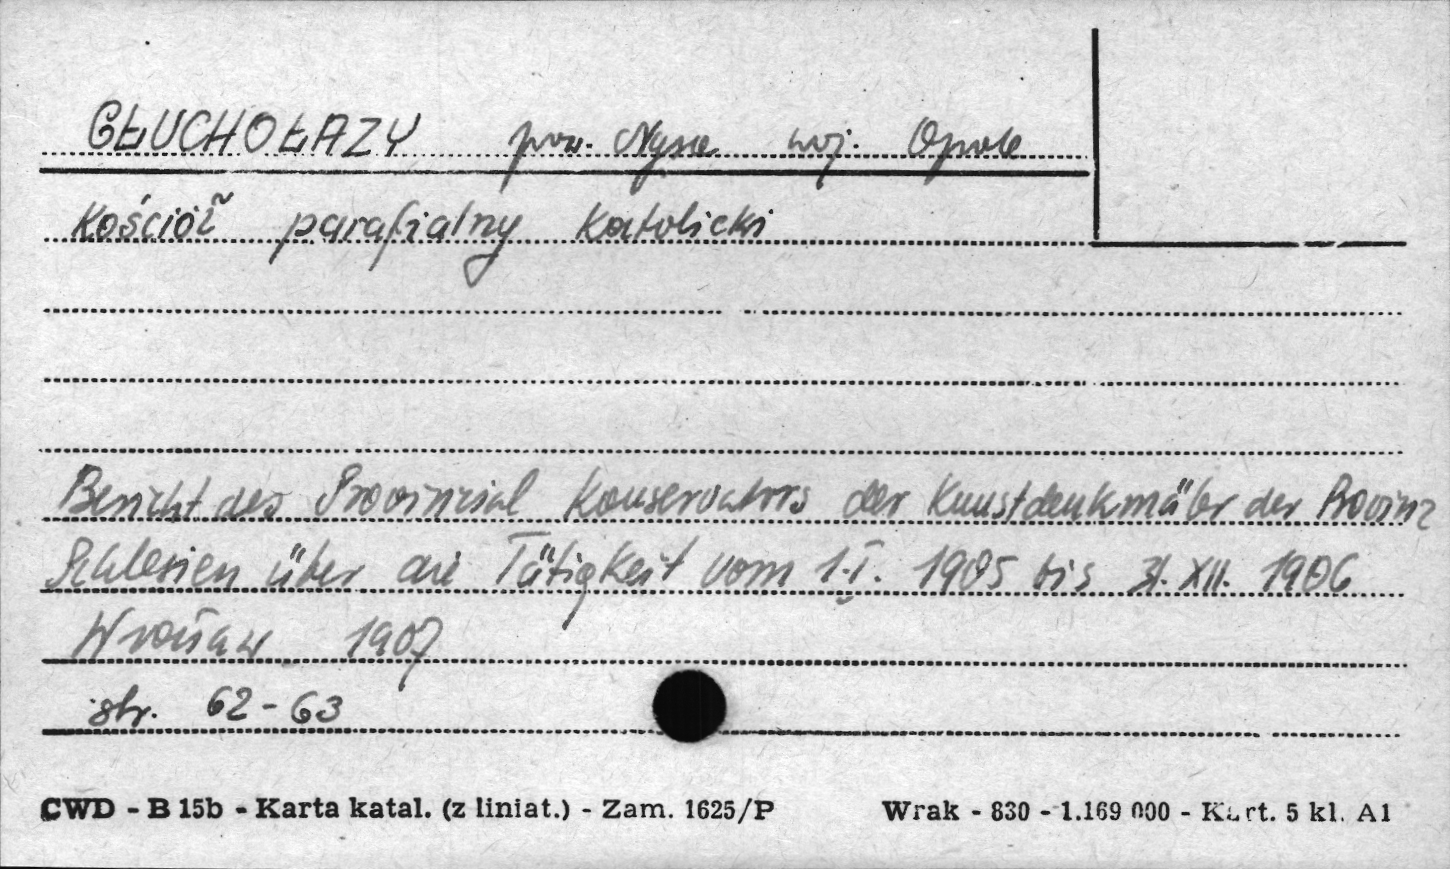 GŁUCHOŁAZY pow. Nysa woj. Opole
Kościół parafialny katolicki
Bericht des Provinzial Konservators der Kunstdenkmäler der Provinz
Schlesien über die Tätigkeit vom 1.I. 1905 bis 31. XII. 1906
Wrocław 1907
str. 62-63
CWD - B 15b - Karta katal. (z liniat.) - Zam. 1625/P Wrak - 830 - 1.169 000 - Kart. 5 kl. A1